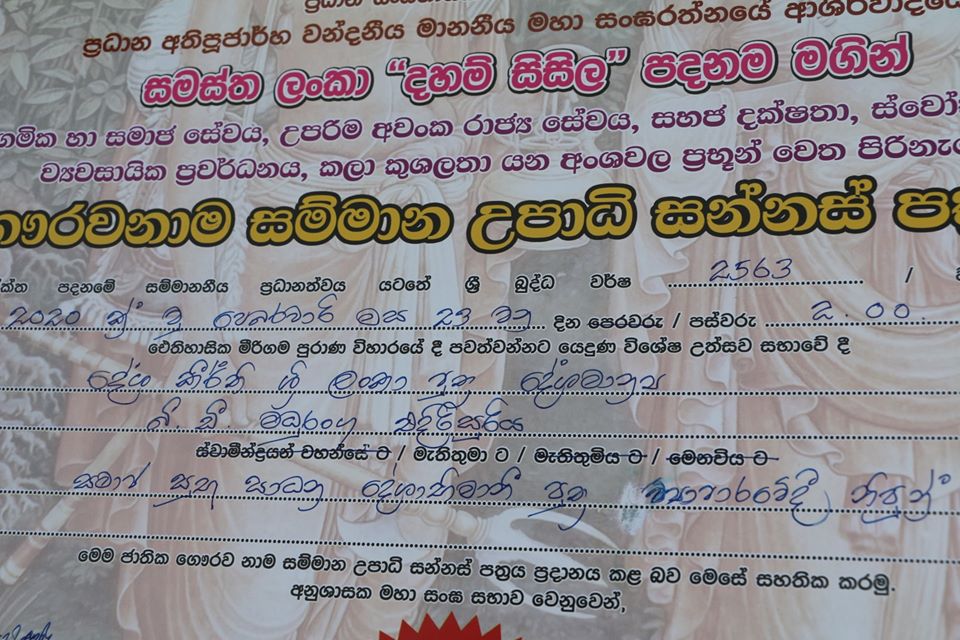 ප්‍රධාන අතිපූජාර්හ වන්දනීය මානනීය මහා සංඝරත්නයේ ආශිර්වාදයෙ
සමස්ත ලංකා “දහම් සිසිල” පදනම මගින්
ගමික හා සමාජ සේවය, උපරිම අවංක රාජ්‍ය සේවය, සහජ දක්ෂතා, ස්වෝ
ව්‍යවසායික ප්‍රවර්ධනය, කලා කුශලතා යන අංශවල ප්‍රභූන් වෙත පිරිනැ
ගෞරවනාම සම්මාන උපාධි සන්නස් පත
ක්ත පදනමේ සම්මානනීය ප්‍රධානත්වය යටතේ ශ්‍රී බුද්ධ වර්ෂ 2563 /
2020 ක් වූ පෙබරවාරි මස 23 වන දින පෙරවරු / පස්වරු 2.00
ඓතිහාසික මීරිගම පුරාණ විහාරයේ දී පවත්වන්නට යෙදුණ විශේෂ උත්සව සභාවේ දී
දේශ කීර්ති ශ්‍රී ලංකා පුත්‍ර දේශමාන්‍ය
මධුරංග එදිරිසූරිය
ස්වාමීන්ද්‍රයන් වහන්සේ ට / මැතිතුමා ට / මැතිතුමිය ට / මෙනවිය ට
සමාජ සත්‍ය සාධන දේශාභිමානී පුත්‍ර ව්‍යාපාරවේදී නිපුන්
මෙම ජාතික ගෞරව නාම සම්මාන උපාධි සන්නස් පත්‍රය ප්‍රදානය කළ බව මෙසේ සහතික කරමු.
අනුශාසක මහා සංඝ සභාව වෙනුවෙන්,